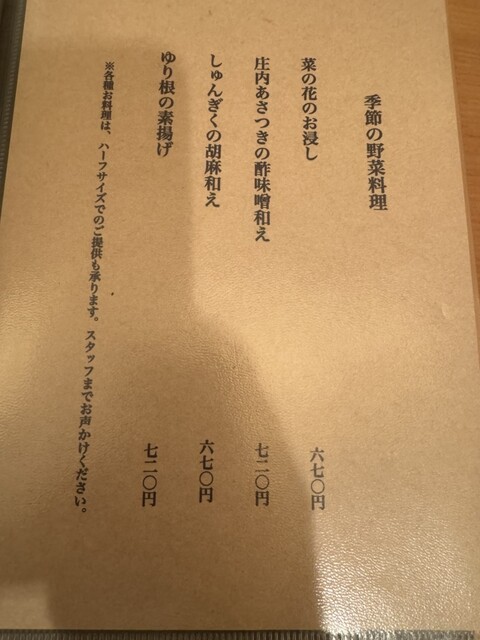 季節の野菜料理
菜の花のお浸し 六七〇円
庄内あさつきの酢味噌和え 七二〇円
しゅんぎくの胡麻和え 六七〇円
ゆり根の素揚げ 七二〇円
※各種お料理は、ハーフサイズでのご提供も承ります。スタッフまでお声かけください。